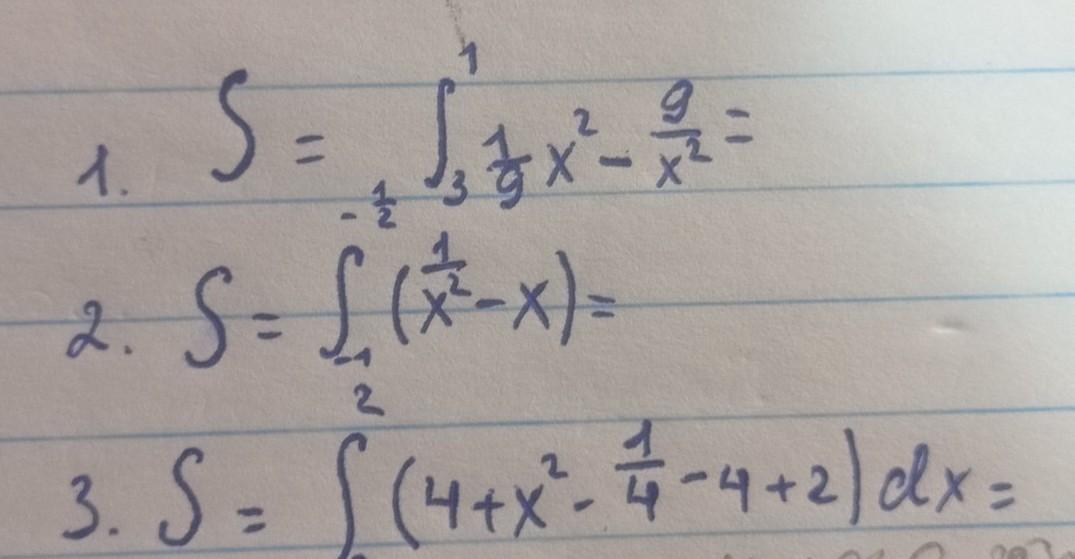 1. S = ∫₃¹ 1/9 x² - 9/x² =
2. S = ∫₋₁^(-1/2) (1/x² - x) =
3. S = ∫² (4 + x² - 1/4 - 4 + 2) dx =